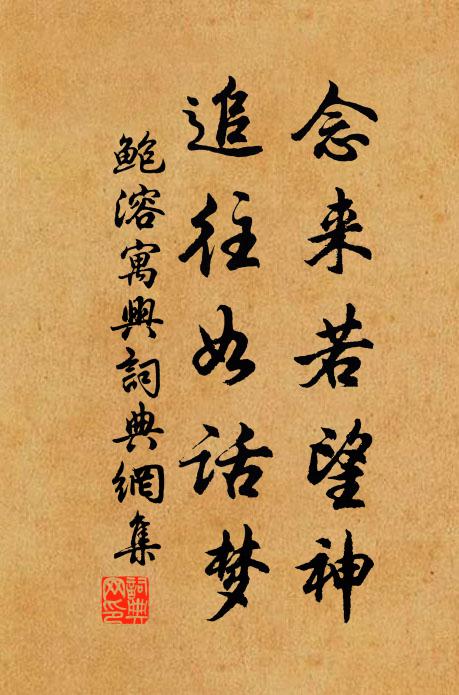 念来若望神
追往如话梦
鲍溶寓興詞典網集
詞典网印